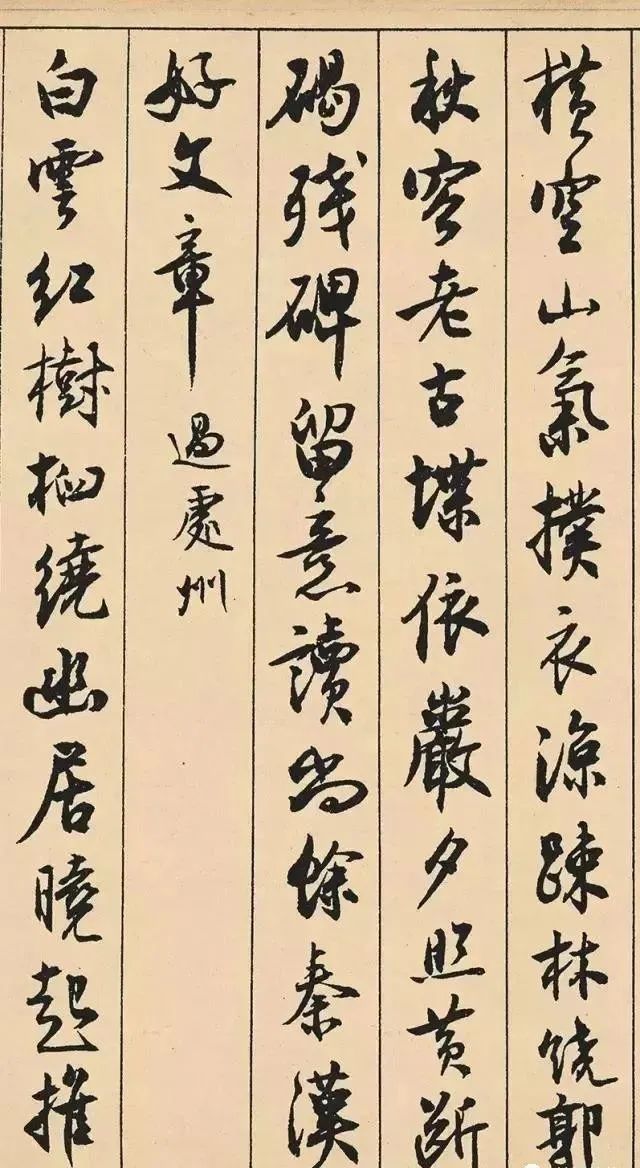 橫空山氣撲衣涼踈林饒郭
秋容老古堞依巖夕照黃斷
碣殘碑留意讀尚餘秦漢
好文章 過處州
白雲紅樹栢繞幽居曉起推